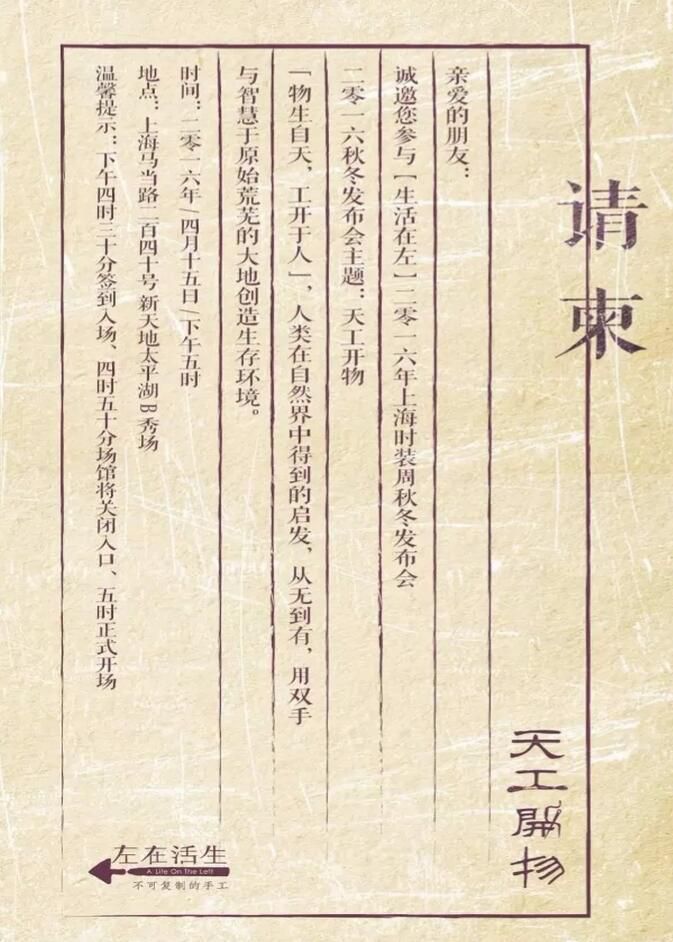 请柬
天工開物
亲爱的朋友：
诚邀您参与［生活在左］二零一六年上海时装周秋冬发布会
二零一六秋冬发布会主题：天工开物
「物生自天，工开于人」，人类在自然界中得到的启发，从无到有，用双手
与智慧于原始荒芜的大地创造生存环境。
时间：二零一六年/四月十五日/下午五时
地点：上海马当路二百四十号 新天地太平湖 B 秀场
温馨提示：下午四时三十分签到入场、四时五十分场馆将关闭入口、五时正式开场
左在活生
A Life On The Left
不可复制的手工